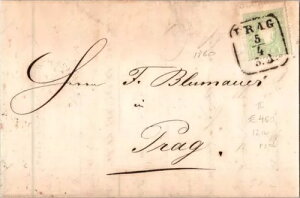 PRAG
5
4
1860
Herrn F. Blumauer
in
Prag.
II
€ 460